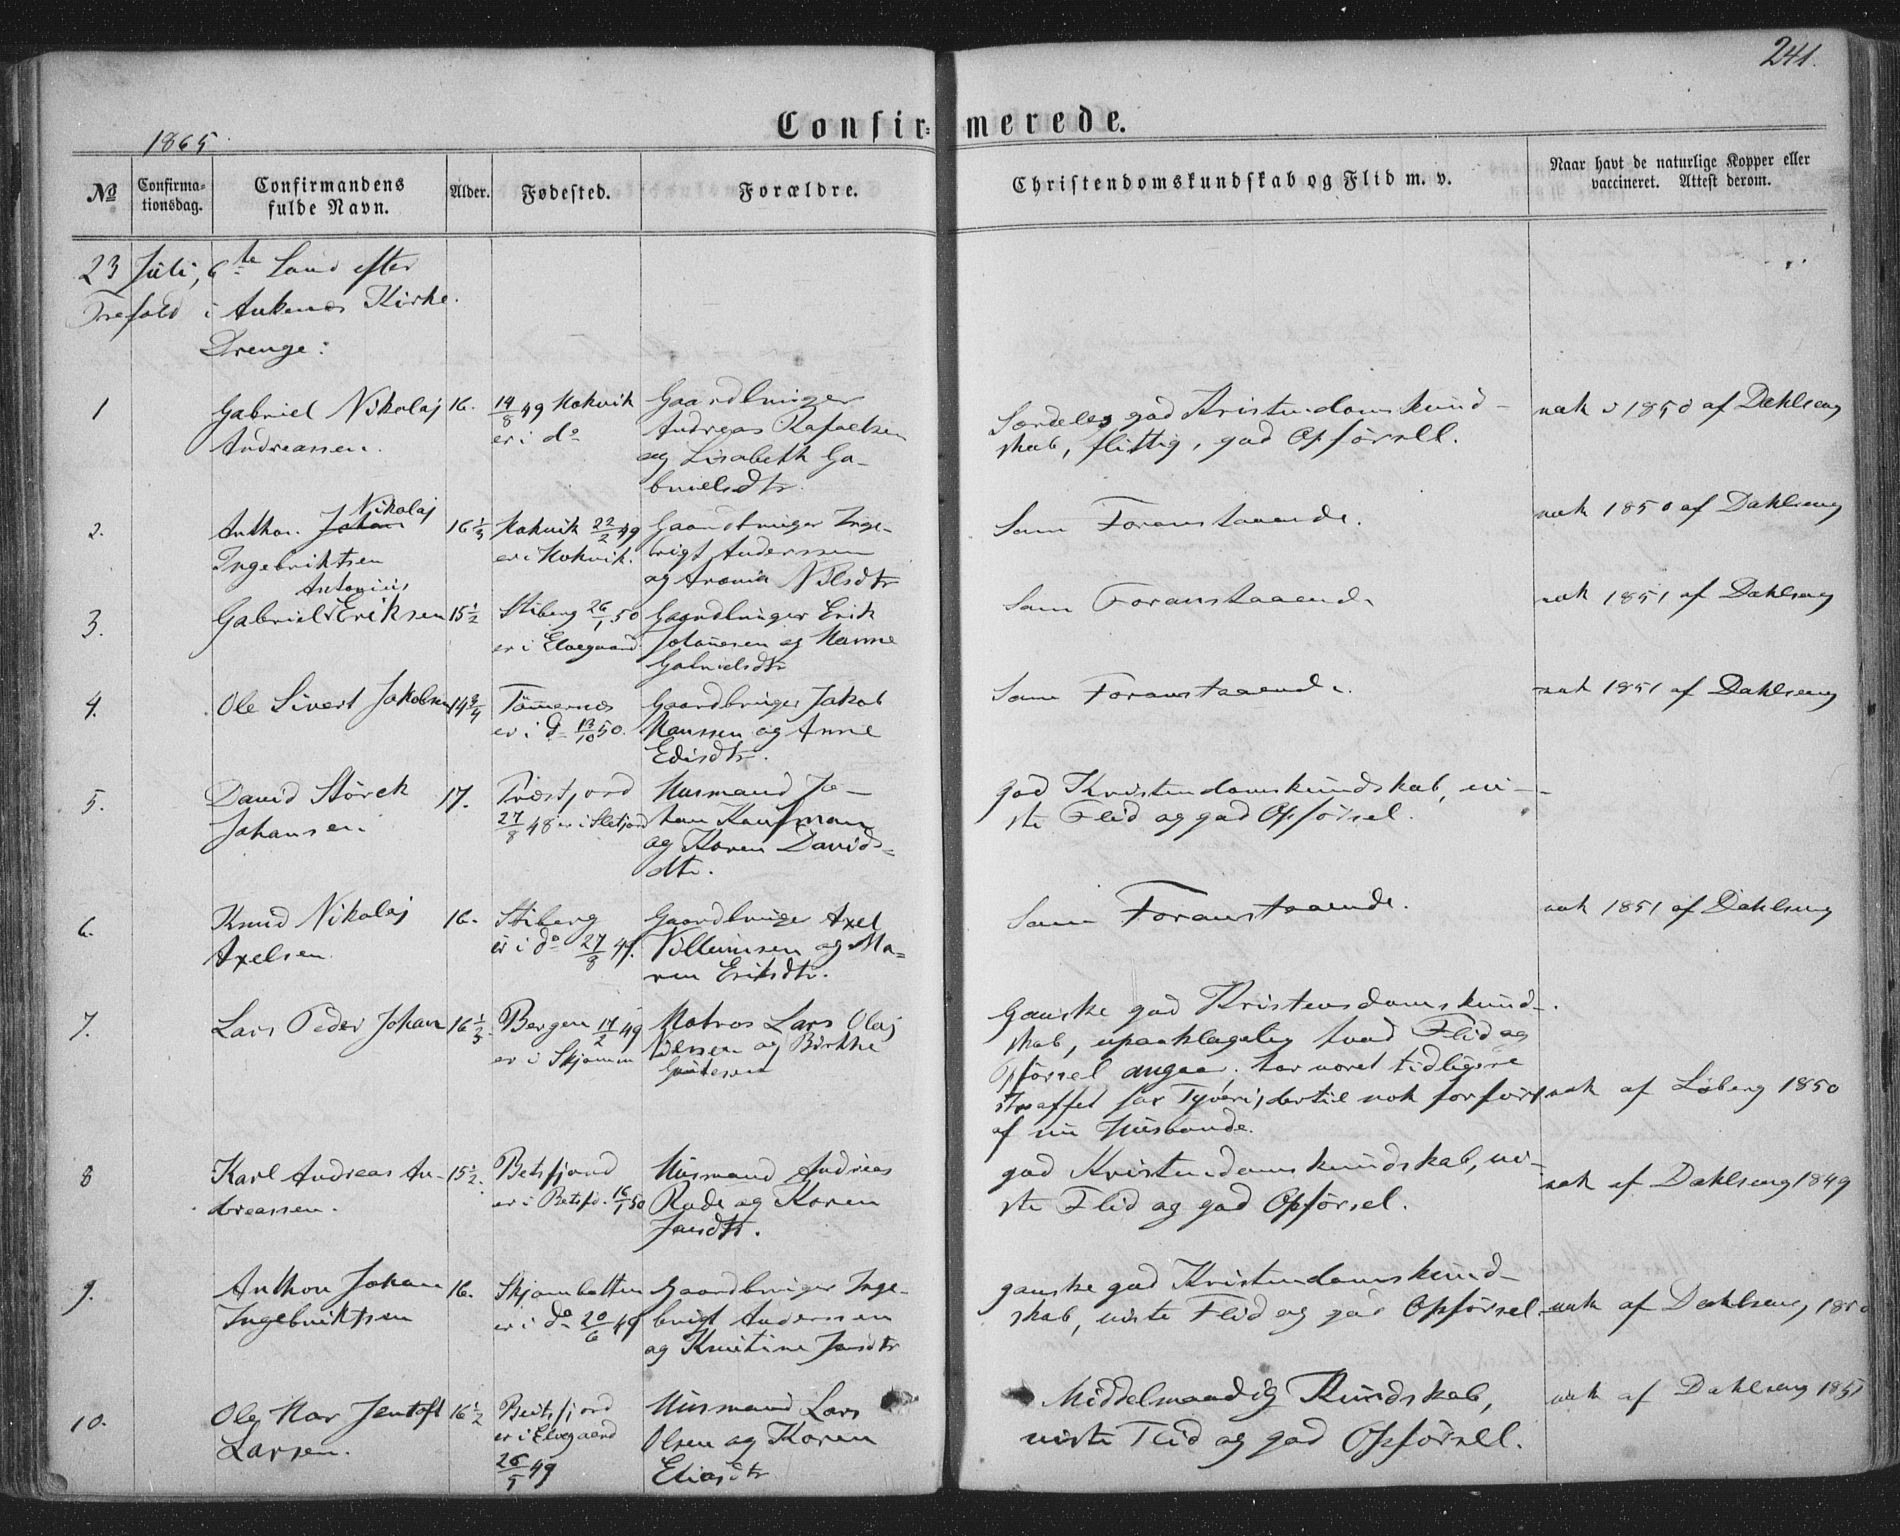 241.
Confirmerede.
1865.
No
Confirma-
tionsdag.
Confirmandens
fulde Navn.
Alder.
Fødested.
Forældre.
Christendomskundskab og Flid m. v.
Naar havt de naturlige Kopper eller
vaccineret. Attest derom.
23 Juli, 6te Sønd efter
Trefold i Ankenes Kirke.
Drenge:
1
Gabriel Nikolaj
Andreassen.
16.
14/8 49 Kokvik
er i do
Gaardbruger
Andreas Rafaelsen
og Lisabeth Ga-
brielsdtr.
Særdeles god Kristendomskund-
skab, flittig, god Opførsell.
vak 1850 af Dahlseng
2.
Anthon Johan Nikolaj
Ingebriktsen
16 1/3
Kokvik 22/2 49
er i Kokvik.
Gaardbruger Inge-
brigt Anderssen
og Nilsdtr
Som Foranstaaende.
vak 1850 af Dahlseng
3.
Antonius
Gabriel Eriksen
15 1/2
Stiberg 26/1 50
er i Elvegaard
Gaardbruger Erik
Johannesen og Hanne
Gabrielsdtr
Som Foranstaaende
vak 1851 af Dahlseng
4.
Ole Sivert Jakobsen
14 3/4
Tømernes
er i do 13/10 50.
Gaardbruger Jakob
Hanssen og Anne
Edisdtr.
Som Foranstaaende.
vak 1851 af Dahlseng
5.
David Störck
Johansen
17.
27/8 48 er i
Husmand Jo-
han Kaufman
og Karen Davids-
dtr.
god Kristendomskundskab, vi-
ste Flid og god Opførsel.
6.
Knud Nikolaj
Axelsen.
16.
Stiberg
er i do 27/8 49.
Gaardbruger Axel
Villumsen og Ma-
ren Eriksdtr.
Som Foranstaaende.
vak 1851 af Dahlseng
7.
Lars Peder Johan
16 1/3
Bergen 14/2 49
er i Skjomen
Matros Lars Olaj
Nilssen og Birthe
Ganske god Kristendomskund-
skab, upaaklagelig hvad Flid og
Opførsel angaar; har været tidligere
straffet for Tyveri, dertil nok forført
af sin Husbonde.
vak af Loberg 1850
8
Karl Andreas An-
dreassen.
15 1/2.
Betsfjord
er i Betsfd. 16/1 50
Husmand Andreas
Rode og Karen
Jansdtr.
god Kristendomskundskab, vi-
ste Flid og god Opførsel.
vak af Dahlseng 1849
9.
Anthon Johan
Ingebriktsen
16.
Skjombotten
er i do 20/6 49
Gaardbruger Inge-
brigt Anderssen
og Kristine Jansdtr
ganske god Kristendomskund-
skab, viste Flid og god Opførsel.
vak af Dahlseng 1850
10.
Olaj Kar Jentoft
Larsen.
16 1/2
Beitsfjord
er i Elvegaard
26/5 49
Husmand Lars
Olsen og Karen
Eliasdtr
Middelmaadig Kundskab,
viste Flid og god Opførsell.
vak af Dahlseng 1851